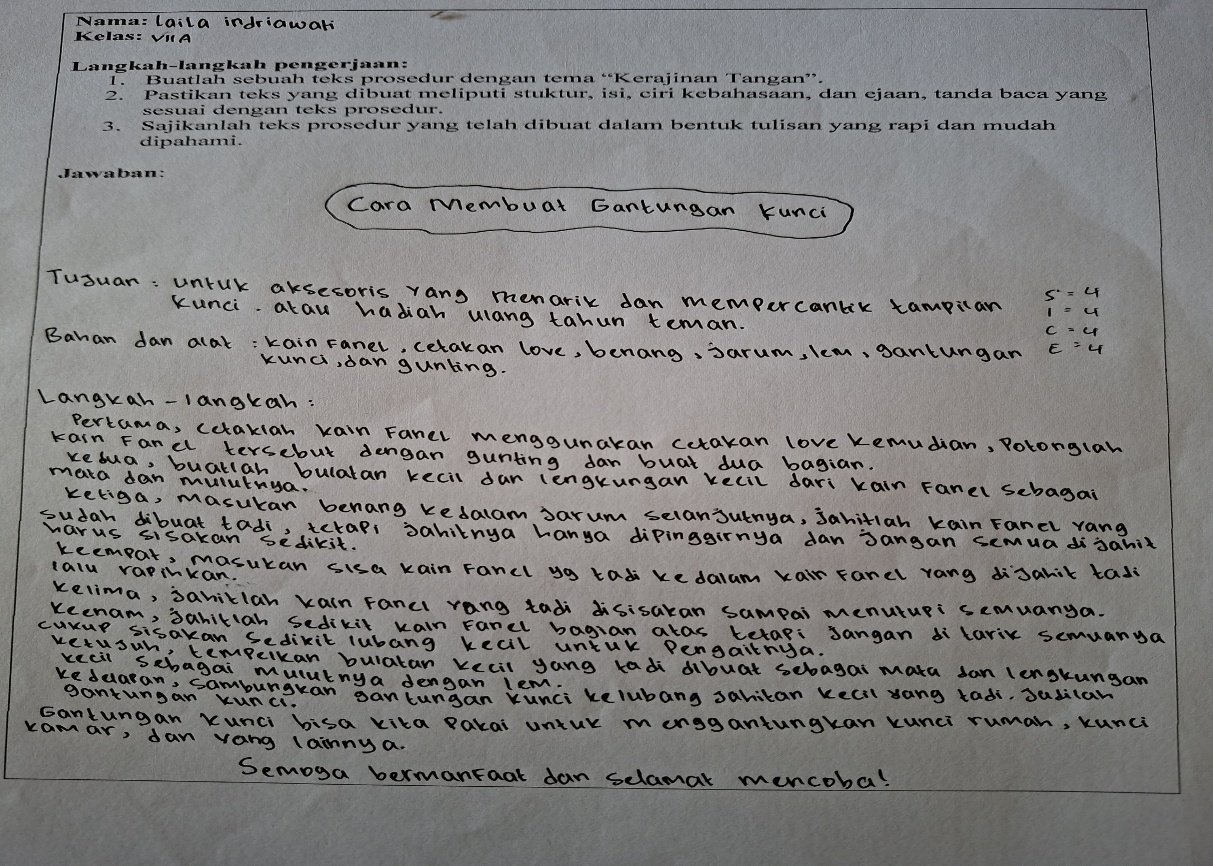 Nama: Laila indriawati
Kelas: VII A
Langkah-langkah pengerjaan:
1. Buatlah sebuah teks prosedur dengan tema “Kerajinan Tangan”.
2. Pastikan teks yang dibuat meliputi stuktur, isi, ciri kebahasaan, dan ejaan, tanda baca yang
sesuai dengan teks prosedur.
3. Sajikanlah teks prosedur yang telah dibuat dalam bentuk tulisan yang rapi dan mudah
dipahami.
Jawaban:
Cara Membuat Gantungan Kunci
Tujuan : untuk aksesoris yang menarik dan mempercantik tampilan
kunci . atau hadiah ulang tahun teman.
S = 4
I = 4
C = 4
E = 4
Bahan dan alat : kain fanel, cetakan love, benang, jarum, lem, gantungan
kunci, dan gunting.
Langkah - langkah :
Pertama, cetaklah kain fanel menggunakan cetakan love kemudian, potonglah
kain fanel tersebut dengan gunting dan buat dua bagian.
kedua, buatlah bulatan kecil dan lengkungan kecil dari kain fanel sebagai
mata dan mulutnya.
ketiga, masukan benang kedalam jarum selanjutnya, jahitlah kain fanel yang
sudah dibuat tadi, tetapi jahitnya hanya dipinggirnya dan jangan semua di jahit
harus sisakan sedikit.
keempat, masukan sisa kain fanel yg tadi ke dalam kain fanel yang di jahit tadi
lalu rapihkan.
kelima, jahitlah kain fanel yang tadi disisakan sampai menutupi semuanya.
keenam, jahitlah sedikit kain fanel bagian atas tetapi jangan di tarik semuanya
cukup sisakan sedikit lubang kecil untuk pengaitnya.
ketujuh, tempelkan bulatan kecil yang tadi dibuat sebagai mata dan lengkungan
kecil sebagai mulutnya dengan lem.
kedelapan, sambungkan gantungan kunci kelubang jahitan kecil yang tadi. Jadilah
gantungan kunci.
Gantungan kunci bisa kita pakai untuk menggantungkan kunci rumah, kunci
kamar, dan yang lainnya.
Semoga bermanfaat dan selamat mencoba!